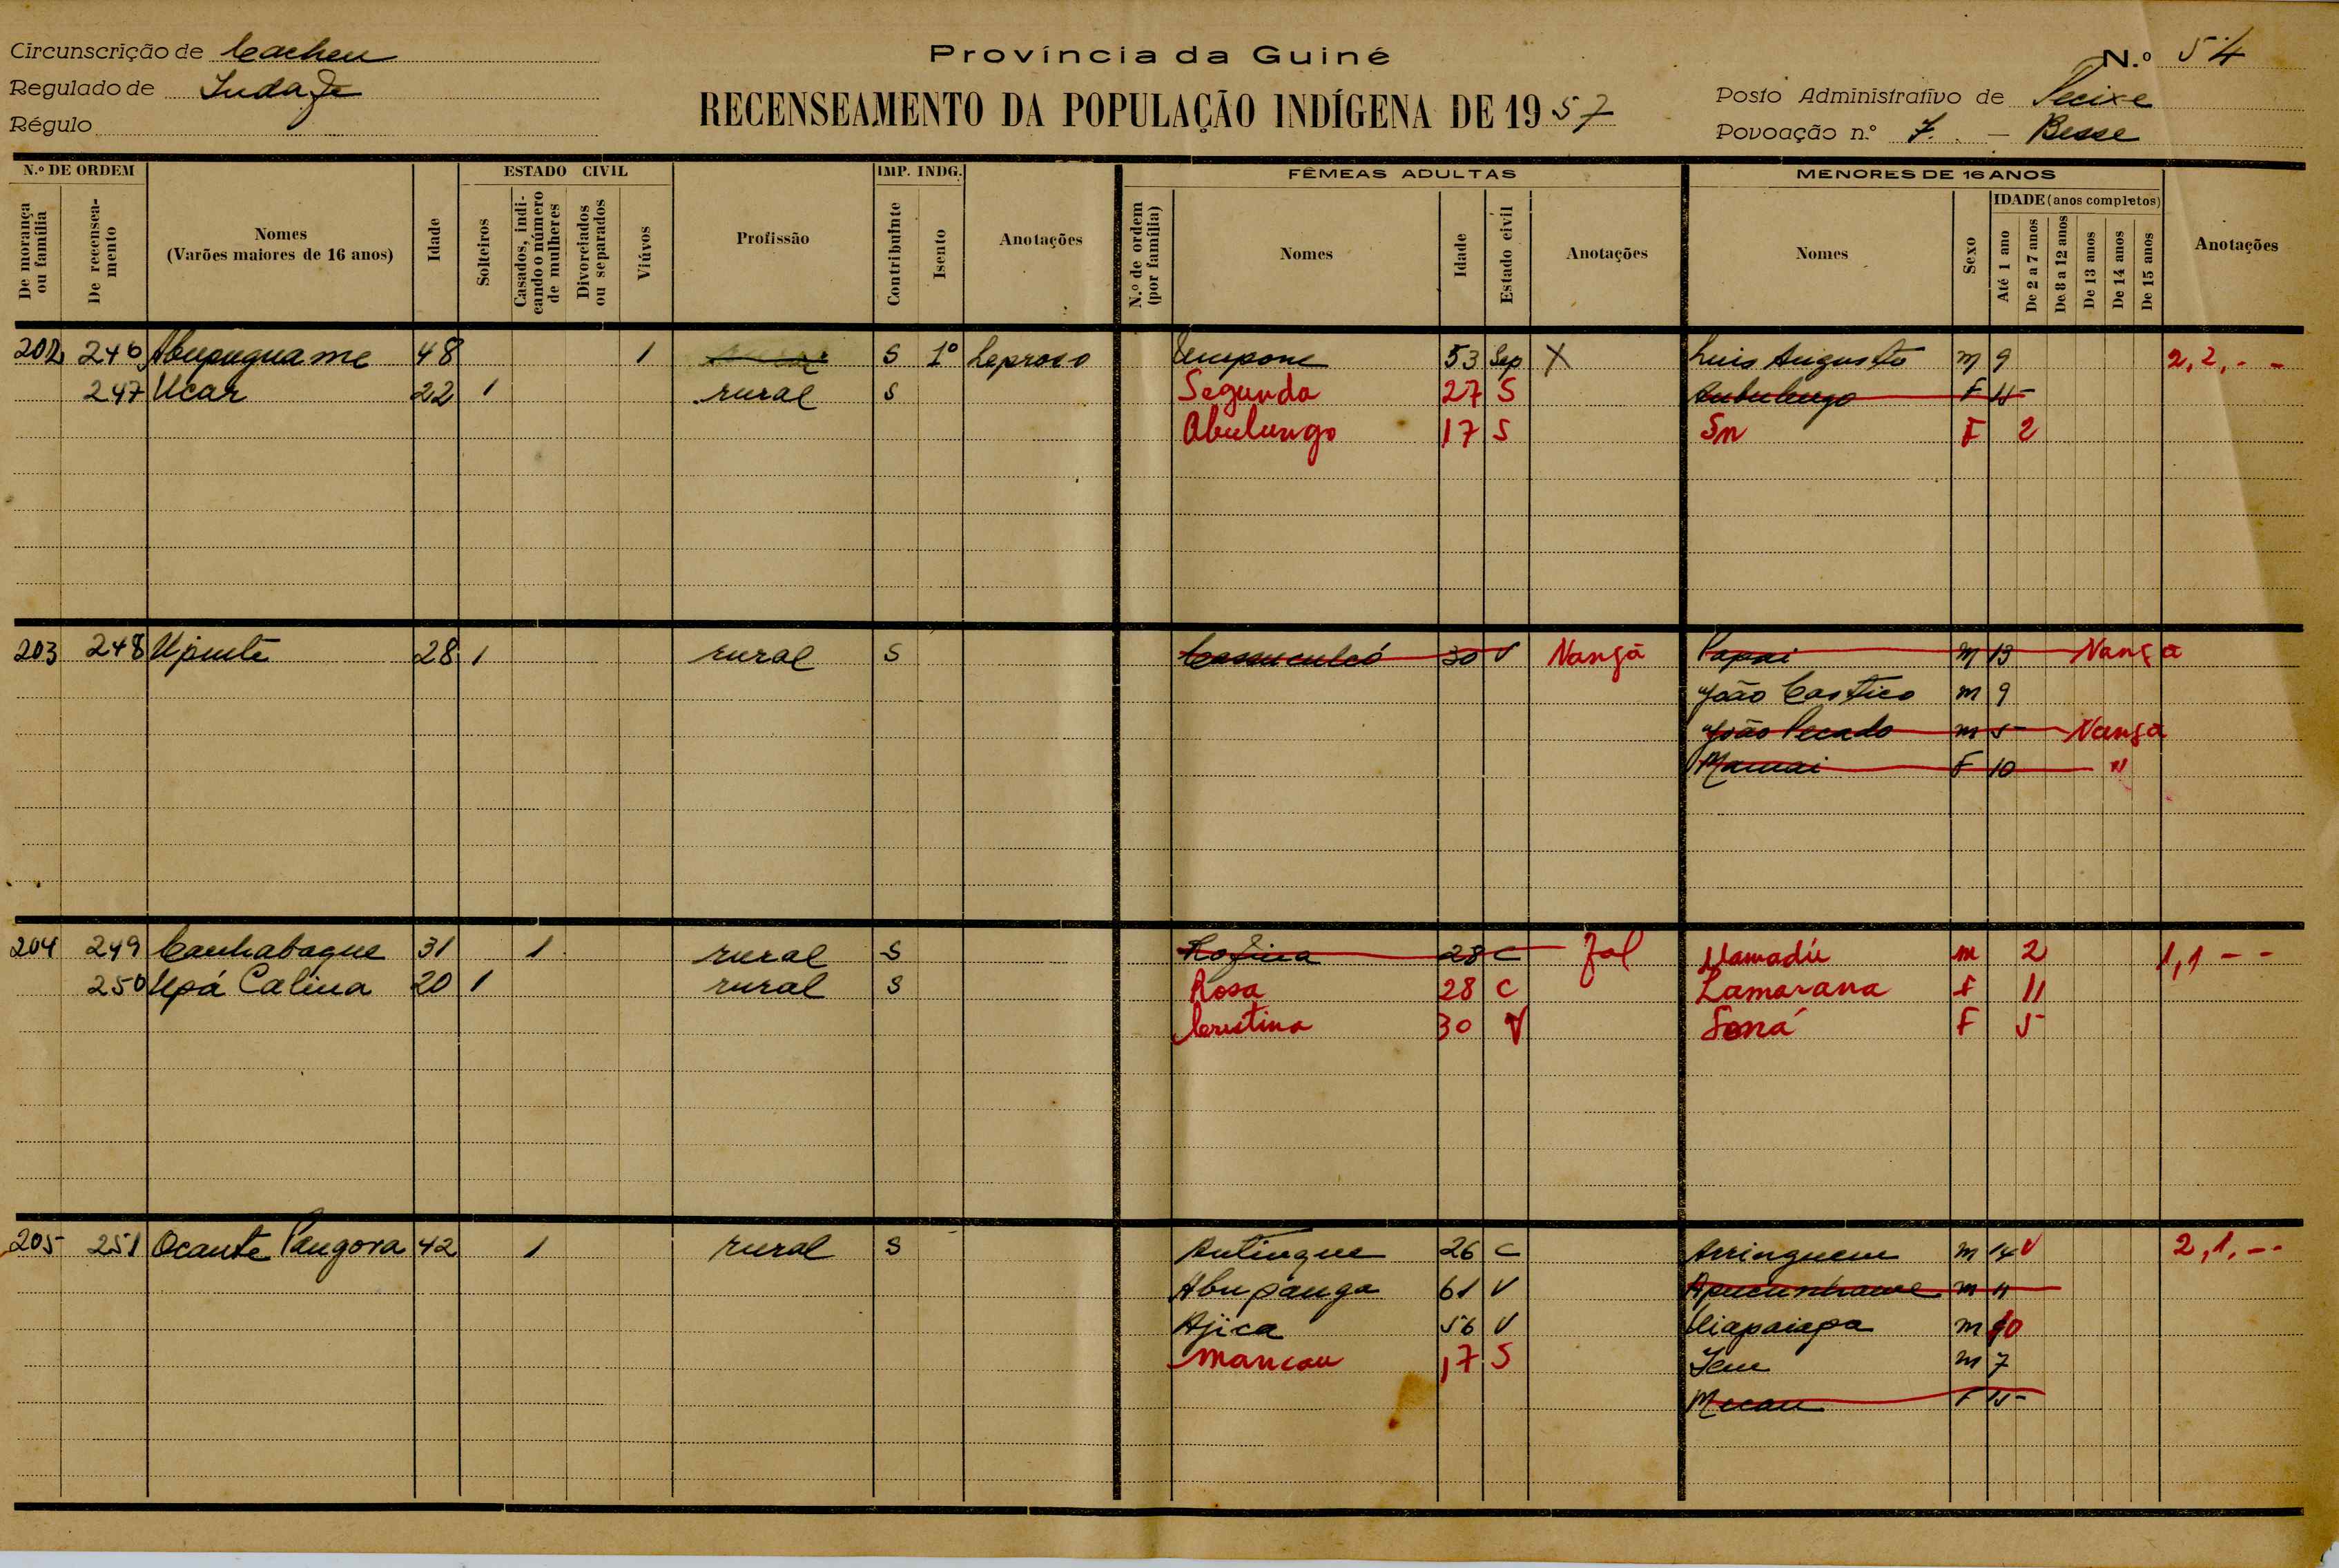 Circunscrição de Cacheu
Província da Guiné
N.º 54
Regulado de
Régulo
RECENSEAMENTO DA POPULAÇÃO INDÍGENA DE 1957
Posto Administrativo de
Povoação n.º 7. — Besse
N.º DE ORDEM
De morança ou família
De recenseamento
Nomes
(Varões maiores de 16 anos)
Idade
ESTADO CIVIL
Solteiros
Casados, indicando o número de mulheres
Divorciados ou separados
Viúvos
Profissão
IMP. INDG.
Contribuinte
Isento
Anotações
FÊMEAS ADULTAS
N.º de ordem (por família)
Nomes
Idade
Estado civil
Anotações
MENORES DE 16 ANOS
Nomes
Sexo
IDADE (anos completos)
Até 1 ano
De 2 a 7 anos
De 8 a 12 anos
De 13 anos
De 14 anos
De 15 anos
Anotações
202 246 Abupuguame 48 1 S 1º Leproso 53 Sep X Luis Augusto M 9 2, 2, - -
247 Ucar 22 1 rural S Segunda 27 S F 15
Abulungo 17 S Sn F 2
203 248 28 1 rural S 30 V Nangã Papai M 13 Nanga
João Castico M 9
João Pecado M 5 Nanga
Mamai F 10 "
204 249 Canhabaque 31 1 rural S 28 C fal Mamadú M 2 1, 1 - -
250 Upá Calina 20 1 rural S Rosa 28 C Lamarana F 11
Cristina 30 V F 5
205 251 Ocante Pangora 42 1 rural S - Antinque 26 C Arringuem M 14 2, 1, - -
Abupanga 61 V M 11
Ajica 56 V M 10
Mancau 17 S M 7
Mecau F 15